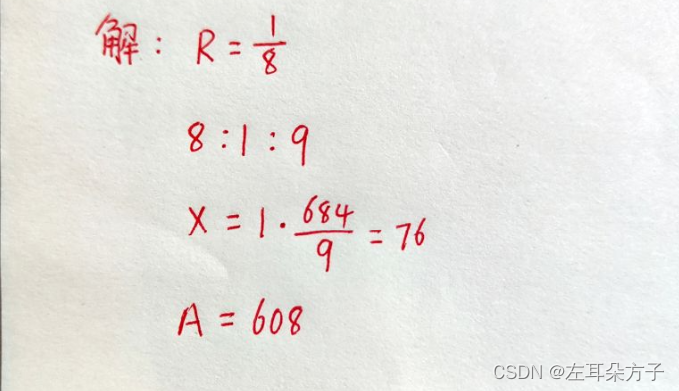 解：R = 1/8
8 : 1 : 9
X = 1 · 684/9 = 76
A = 608
CSDN @左耳朵方子